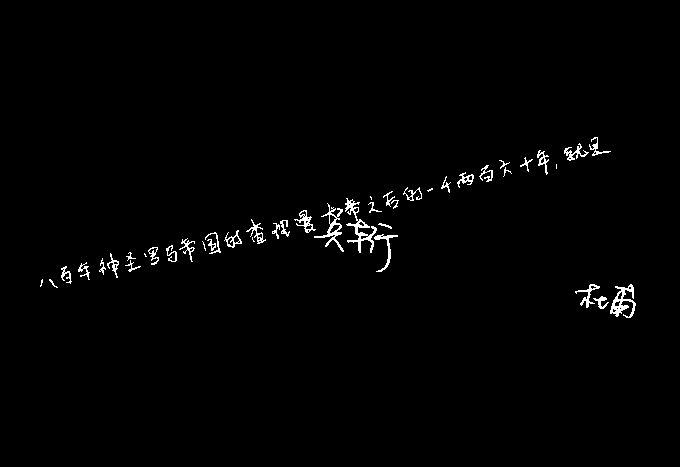 八百年神圣罗马帝国的查理曼大帝之后的一千两百六十年,就是
杜甫